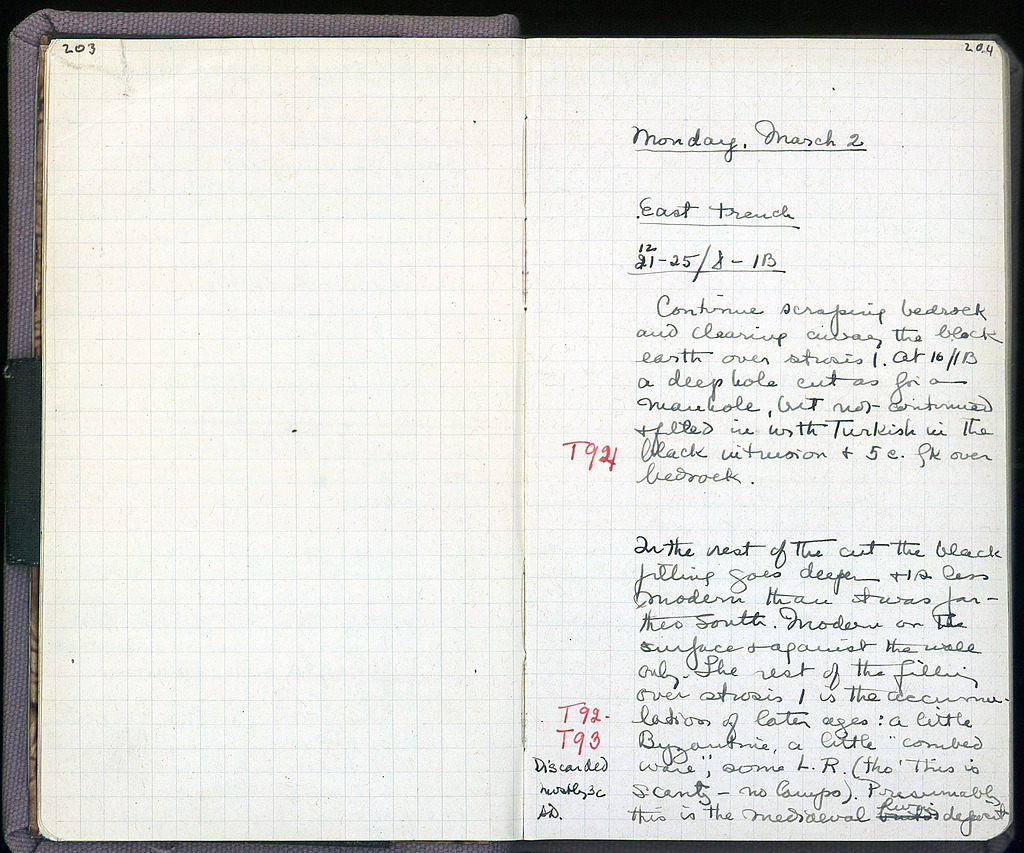 203
204
Monday, March 2
East trench
12
21-25/8-1B
Continue scraping bedrock
and clearing away the black
earth over strosis 1. At 16/1B
a deep hole cut as for a
manhole, but not continued
+ filled in with Turkish in the
T94 black intrusion + 5 c. fk over
bedrock.
In the rest of the cut the black
filling goes deeper + is less
modern than it was far-
ther South. Modern on the
surface + against the wall
only. The rest of the filling
over strosis 1 is the accumu-
T92- lation of later ages: a little
T93 Byzantine, a little "combed
Discarded ware", some L.R. (tho' this is
mostly 3c scanty - no lamps). Presumably
AD. this is the mediaeval deposit